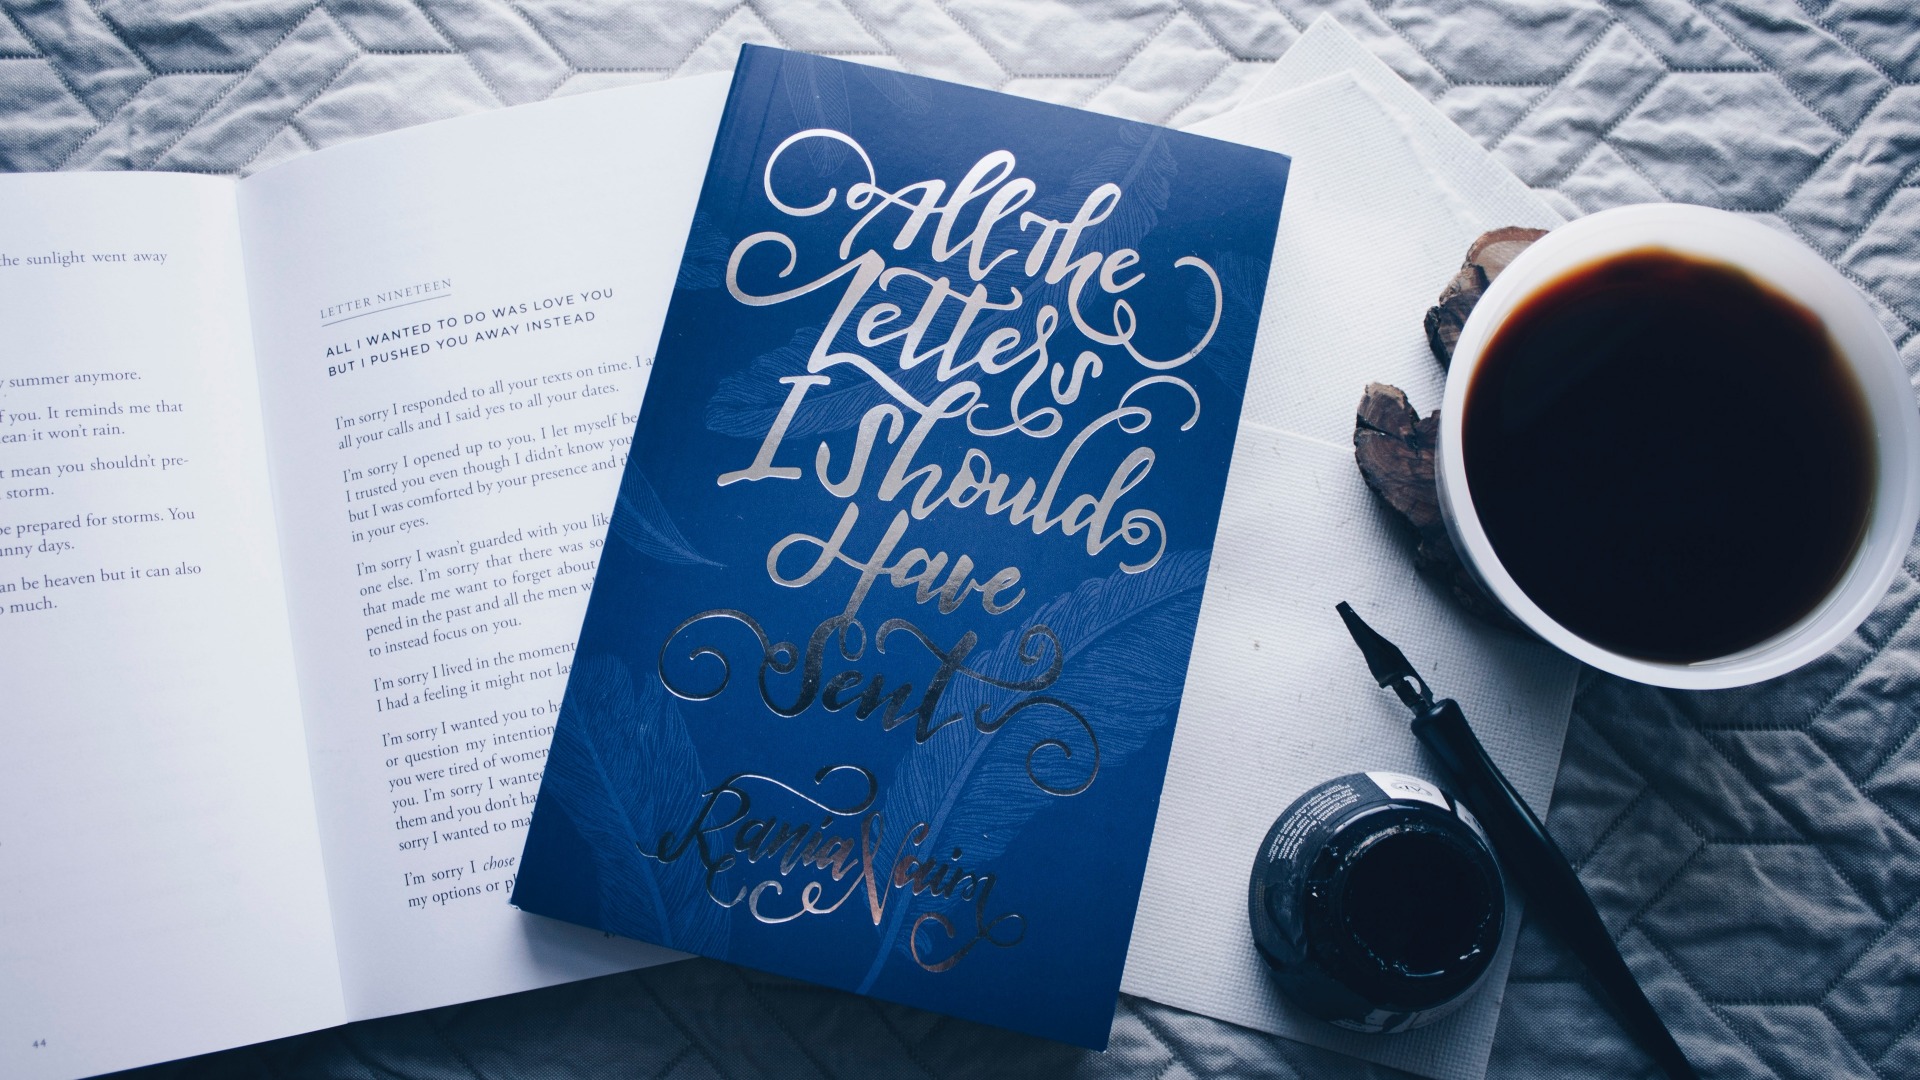 the sunlight went away
summer anymore.
f you. It reminds me that
ean it won't rain.
t mean you shouldn't pre-
storm.
be prepared for storms. You
unny days.
an be heaven but it can also
o much.
44
LETTER NINETEEN
ALL I WANTED TO DO WAS LOVE YOU
BUT I PUSHED YOU AWAY INSTEAD
I'm sorry I responded to all your texts on time. I a
all your calls and I said yes to all your dates.
I'm sorry I opened up to you, I let myself be
I trusted you even though I didn't know you
but I was comforted by your presence and th
in your eyes.
I'm sorry I wasn't guarded with you lik
one else. I'm sorry that there was so
that made me want to forget about
pened in the past and all the men w
to instead focus on you.
I'm sorry I lived in the moment
I had a feeling it might not las
I'm sorry I wanted you to ha
or question my intention
you were tired of women
you. I'm sorry I wanted
them and you don't ha
sorry I wanted to ma
I'm sorry I chose
my options or pl
All the
Letters
I Should
Have
Sent
Rania Naim